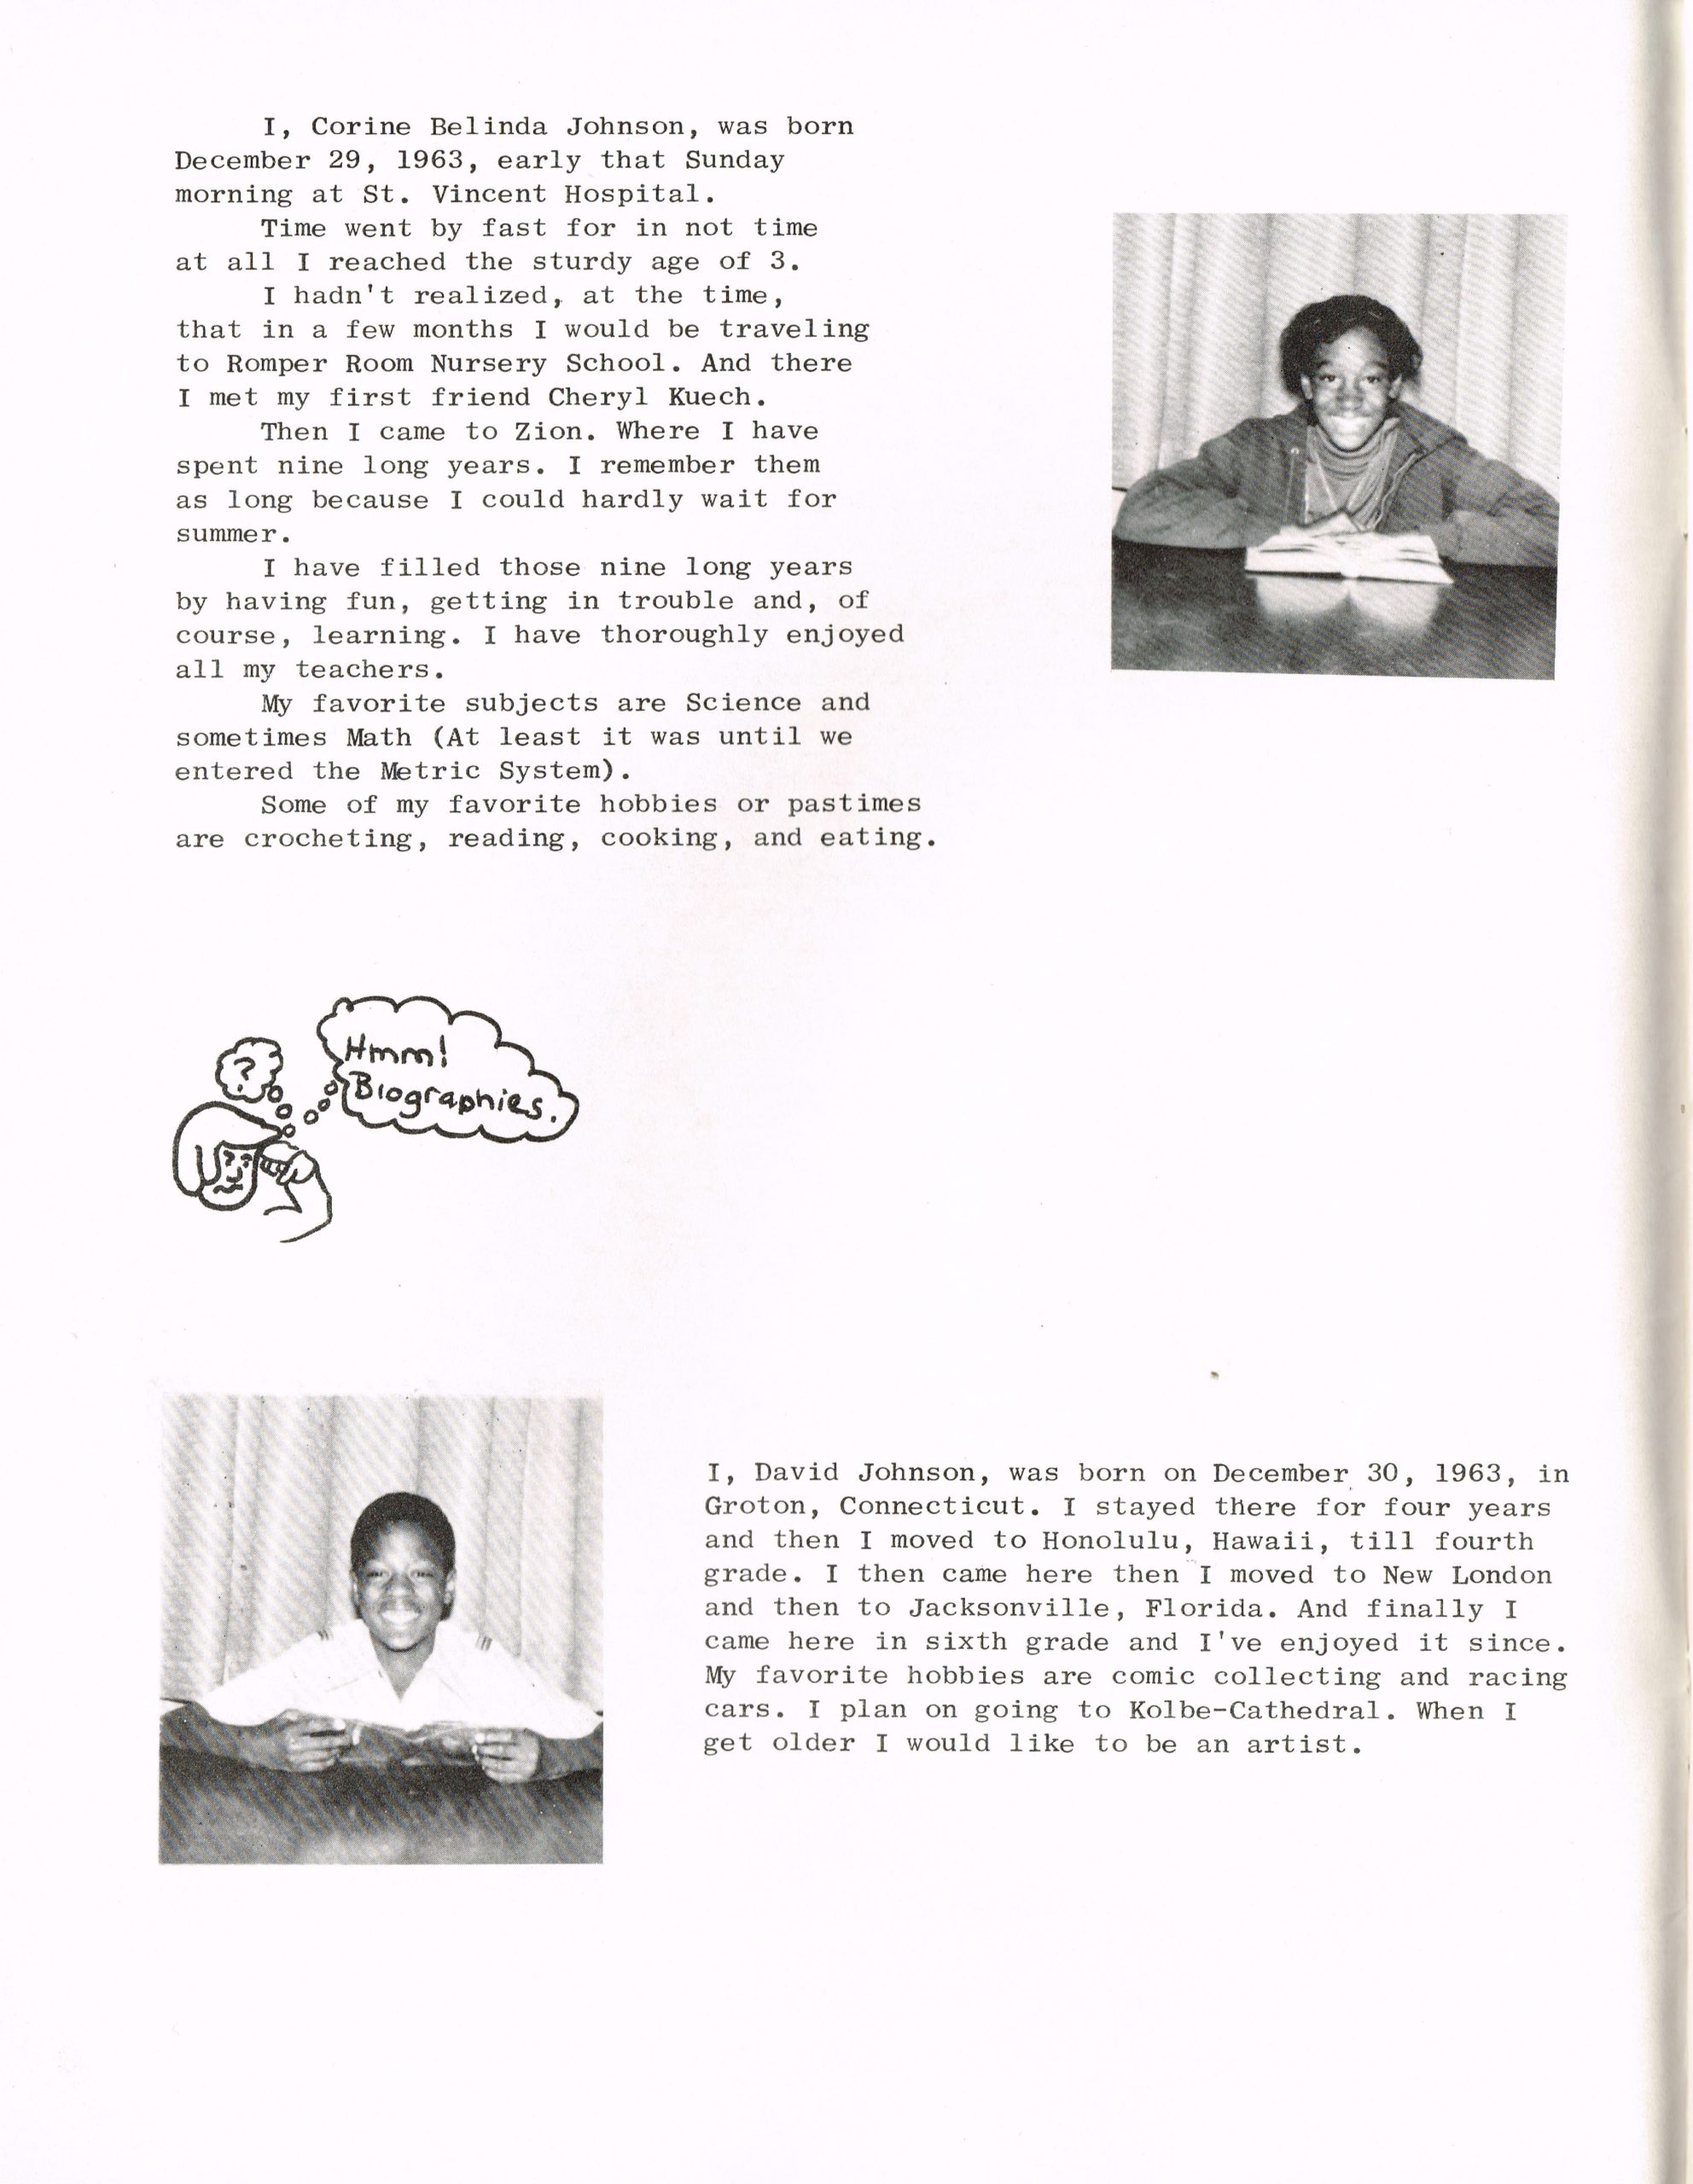 I, Corine Belinda Johnson, was born
December 29, 1963, early that Sunday
morning at St. Vincent Hospital.
Time went by fast for in not time
at all I reached the sturdy age of 3.
I hadn't realized, at the time,
that in a few months I would be traveling
to Romper Room Nursery School. And there
I met my first friend Cheryl Kuech.
Then I came to Zion. Where I have
spent nine long years. I remember them
as long because I could hardly wait for
summer.
I have filled those nine long years
by having fun, getting in trouble and, of
course, learning. I have thoroughly enjoyed
all my teachers.
My favorite subjects are Science and
sometimes Math (At least it was until we
entered the Metric System).
Some of my favorite hobbies or pastimes
are crocheting, reading, cooking, and eating.
?
Hmm!
Biographies.
I, David Johnson, was born on December 30, 1963, in
Groton, Connecticut. I stayed there for four years
and then I moved to Honolulu, Hawaii, till fourth
grade. I then came here then I moved to New London
and then to Jacksonville, Florida. And finally I
came here in sixth grade and I've enjoyed it since.
My favorite hobbies are comic collecting and racing
cars. I plan on going to Kolbe-Cathedral. When I
get older I would like to be an artist.